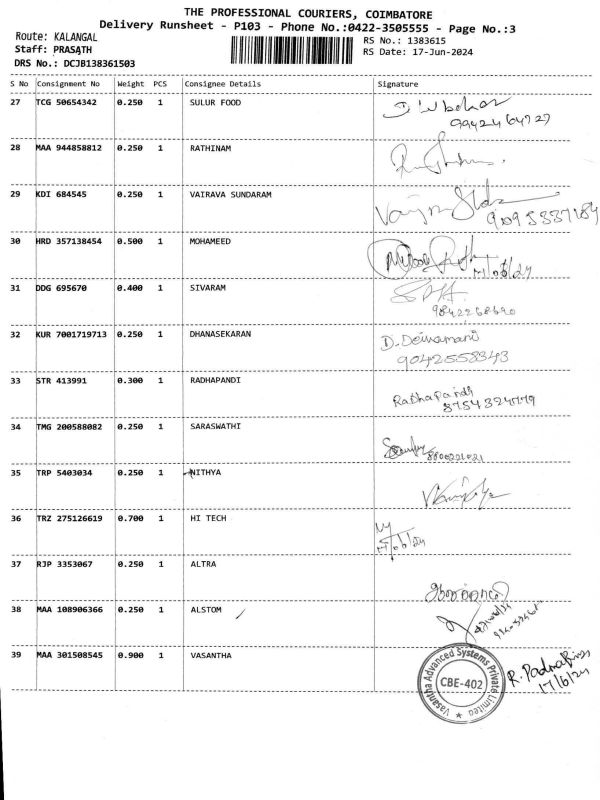 THE PROFESSIONAL COURIERS, COIMBATORE
Delivery Runsheet - P103 - Phone No.:0422-3505555 - Page No.:3
Route: KALANGAL
Staff: PRASATH
DRS No.: DCJB138361503
RS No.: 1383615
RS Date: 17-Jun-2024
S No Consignment No Weight PCS Consignee Details Signature
27 TCG 50654342 0.250 1 SULUR FOOD
28 MAA 944858812 0.250 1 RATHINAM
29 KDI 684545 0.250 1 VAIRAVA SUNDARAM
30 HRD 357138454 0.500 1 MOHAMEED
31 DDG 695670 0.400 1 SIVARAM
9842268690
32 KUR 7001719713 0.250 1 DHANASEKARAN D. Deivamani
9042558343
33 STR 413991 0.300 1 RADHAPANDI Radhapandi
34 TMG 200588082 0.250 1 SARASWATHI
35 TRP 5403034 0.250 1 NITHYA
36 TRZ 275126619 0.700 1 HI TECH
37 RJP 3353067 0.250 1 ALTRA
38 MAA 108906366 0.250 1 ALSTOM
39 MAA 301508545 0.900 1 VASANTHA
Vasantha Advanced Systems Private Limited
CBE-402
17/6/24